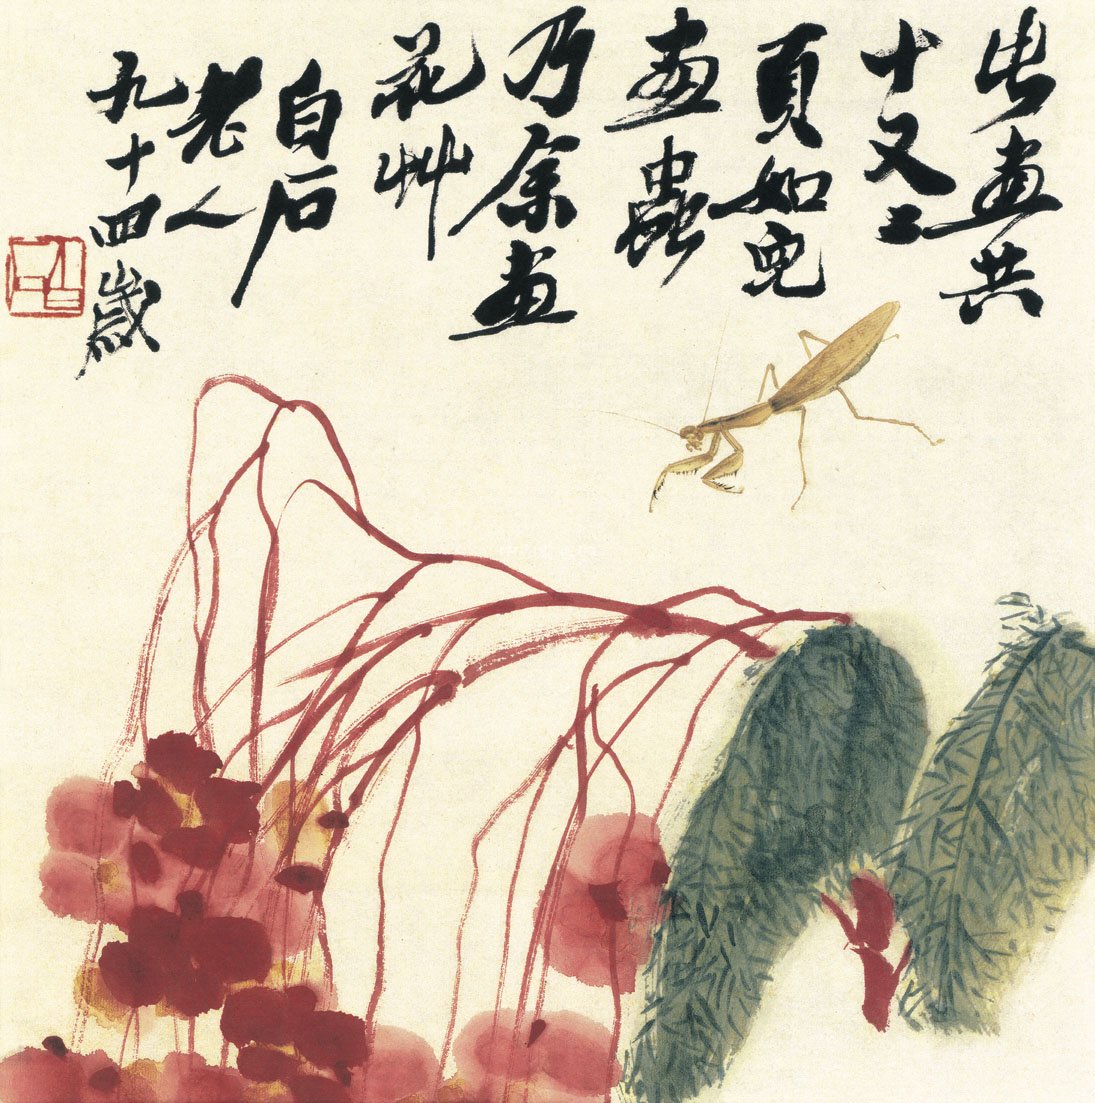 此畫共
十又二
頁如兒
畫蟲
乃余畫
花艸
白石
老人
九十四歲
白石